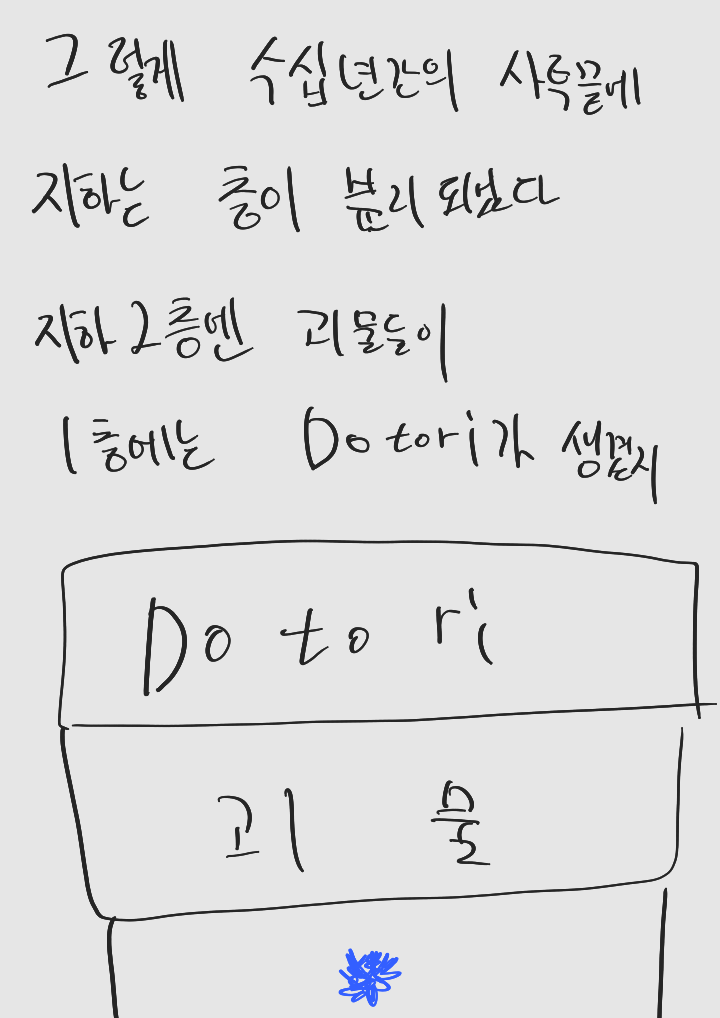 그렇게 수십년간의 사투끝에
지하는 층이 분리되었다
지하 2층엔 괴물들이
1층에는 Dotori가 생겼지
Dotori
괴물